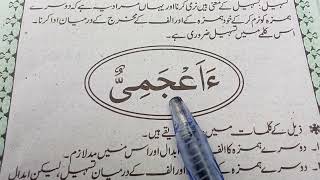 تسہیل: تسہیل کے معنیٰ ہیں نرمی کرنا اور یہاں مراد یہ ہے کہ دوسرے
ہمزہ کو نرم کر کے خود ہمزہ کے اور الف کے مخرج کے درمیان ادا کرنا۔
اس کلمے میں تسہیل ضروری ہے۔
ءَاَعْجَمِىٌّ
ذیل کے کلمات میں طریقے ہیں۔
۱۔ دوسرے ہمزہ کا الف ابدال اور اس میں مد لازم۔
دوسرے ہمزہ کے اور الف کے درمیان تسہیل لیکن ابدال